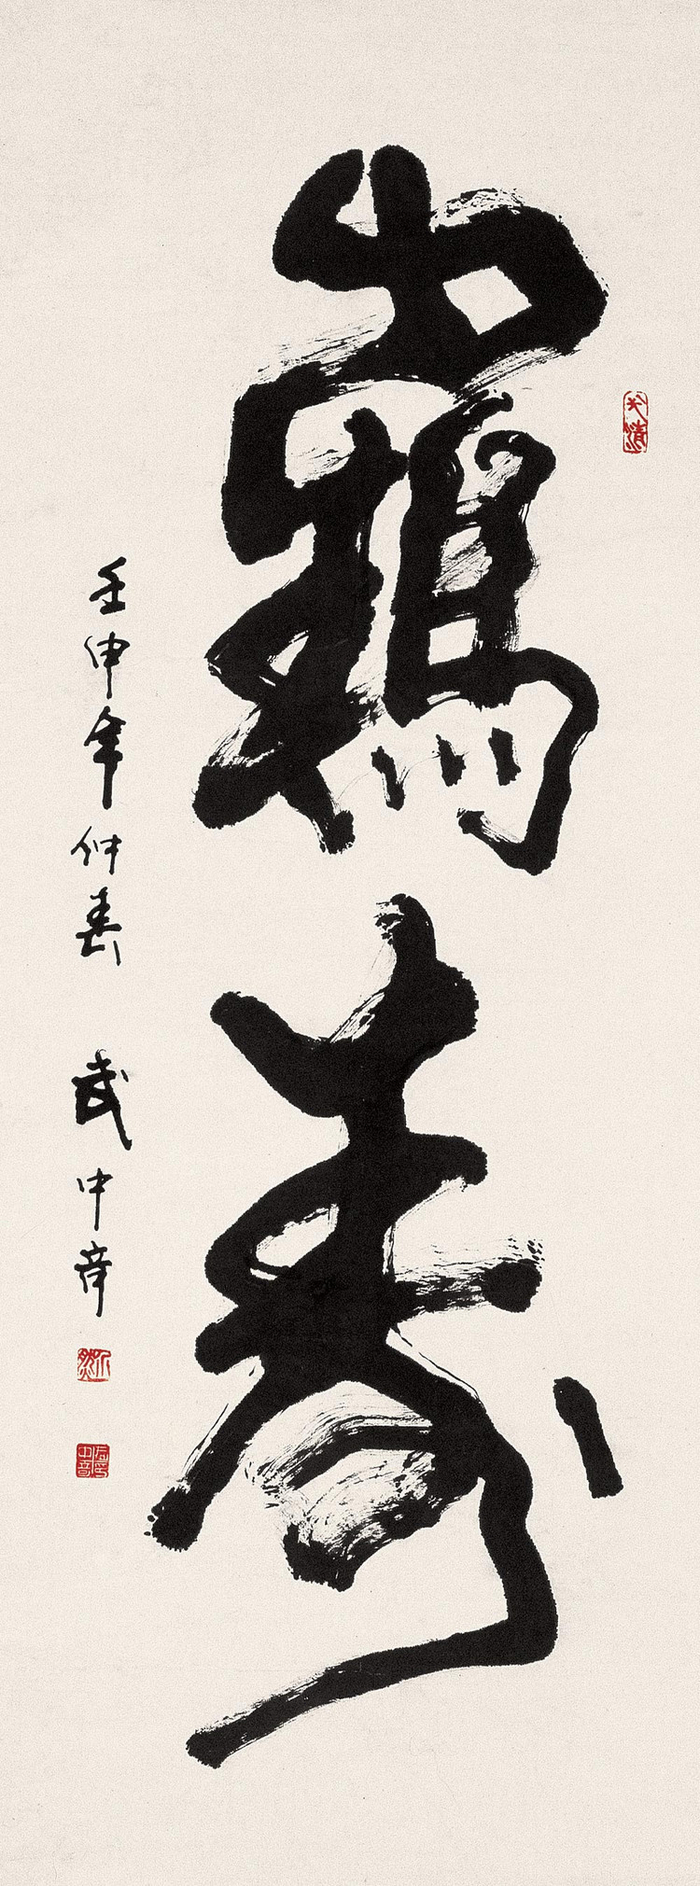 鶴寿
壬申年仲春 武中奇